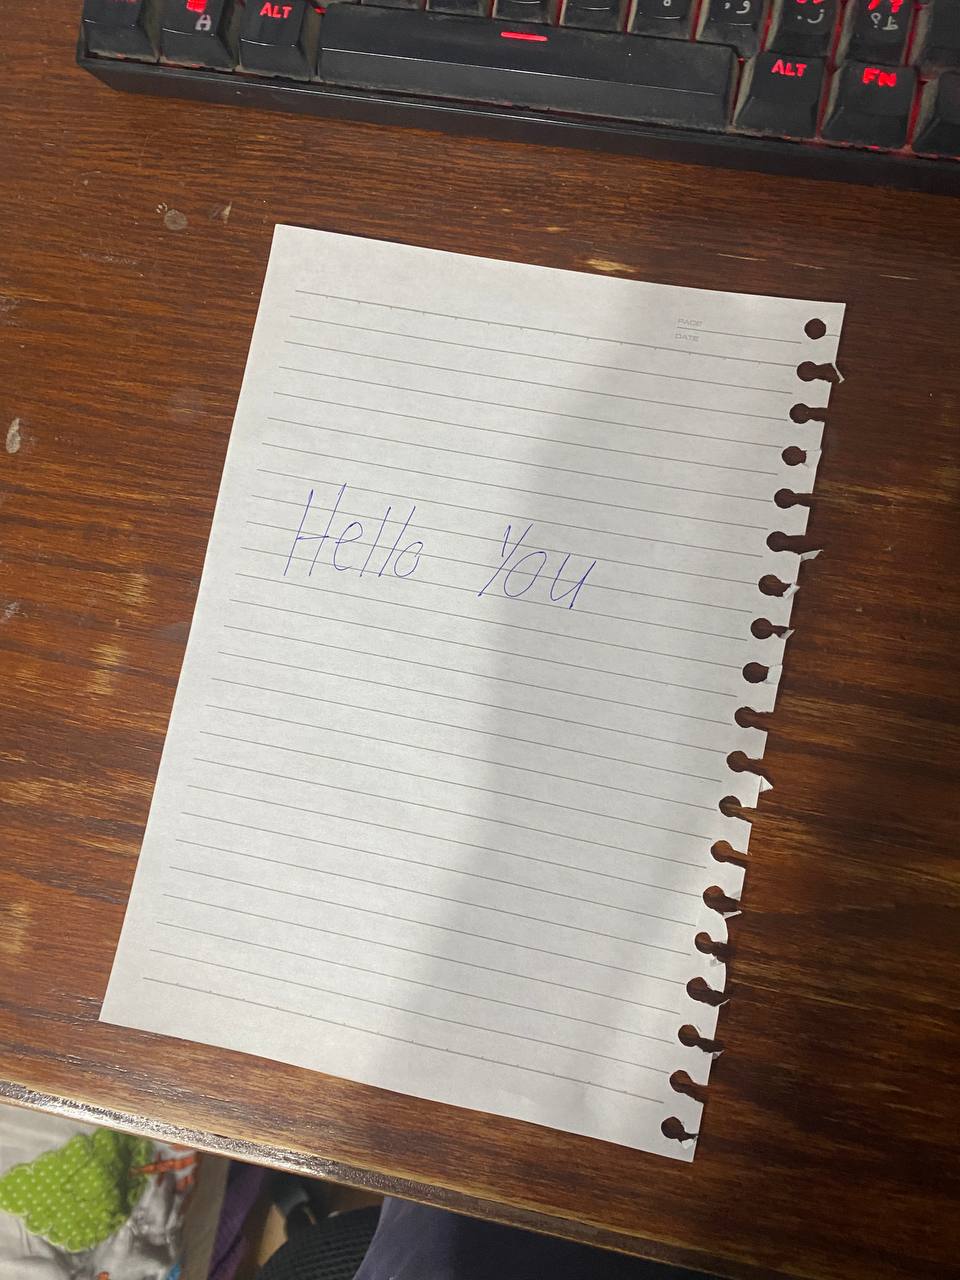 ALT
ALT FN
PAGE
DATE
Hello You